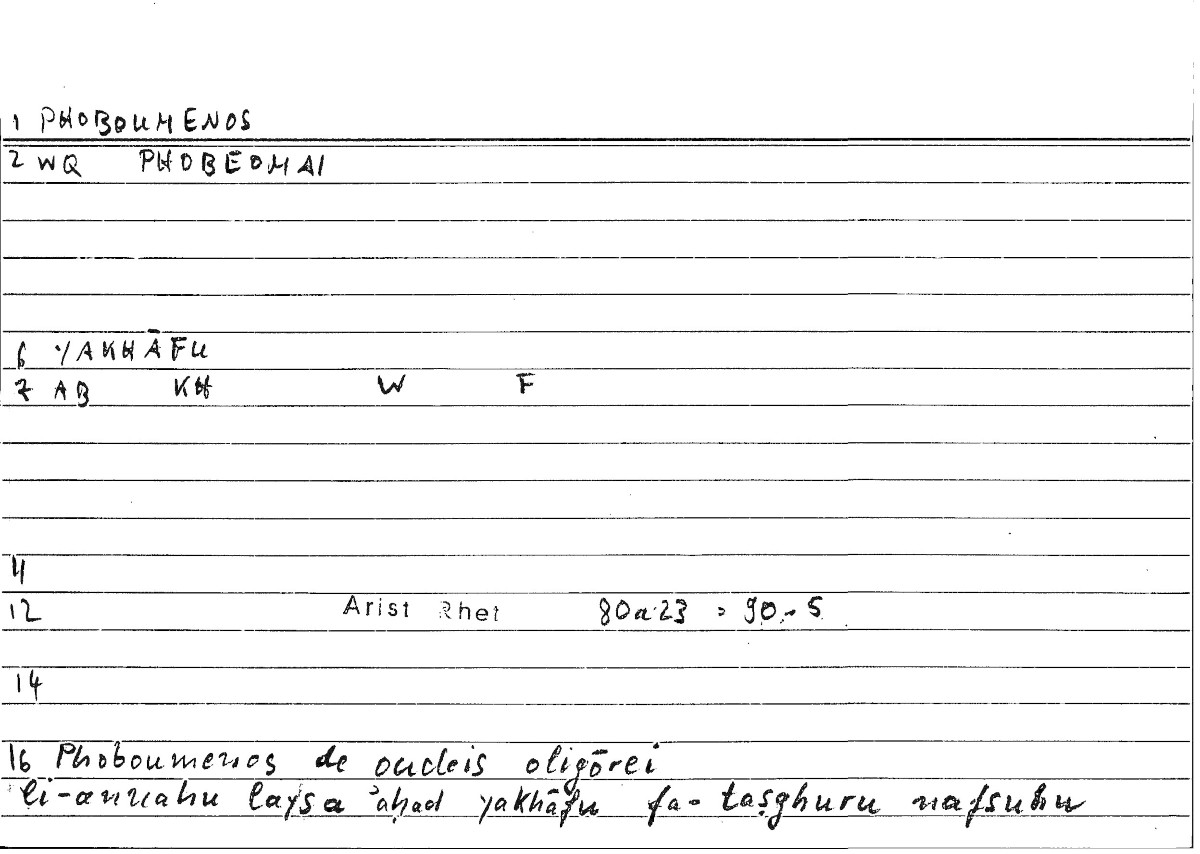 1 PHOBOUMENOS
2 WQ PHOBEOMAI
6 YAKHĀFU
7 AB KH W F
11
12 Arist Rhet 80a23 = 90,-5
14
16 Phoboumenos de oudeis oligōrei
li-annahu laysa ʾaḥad yakhāfu fa-taṣghuru nafsuhu